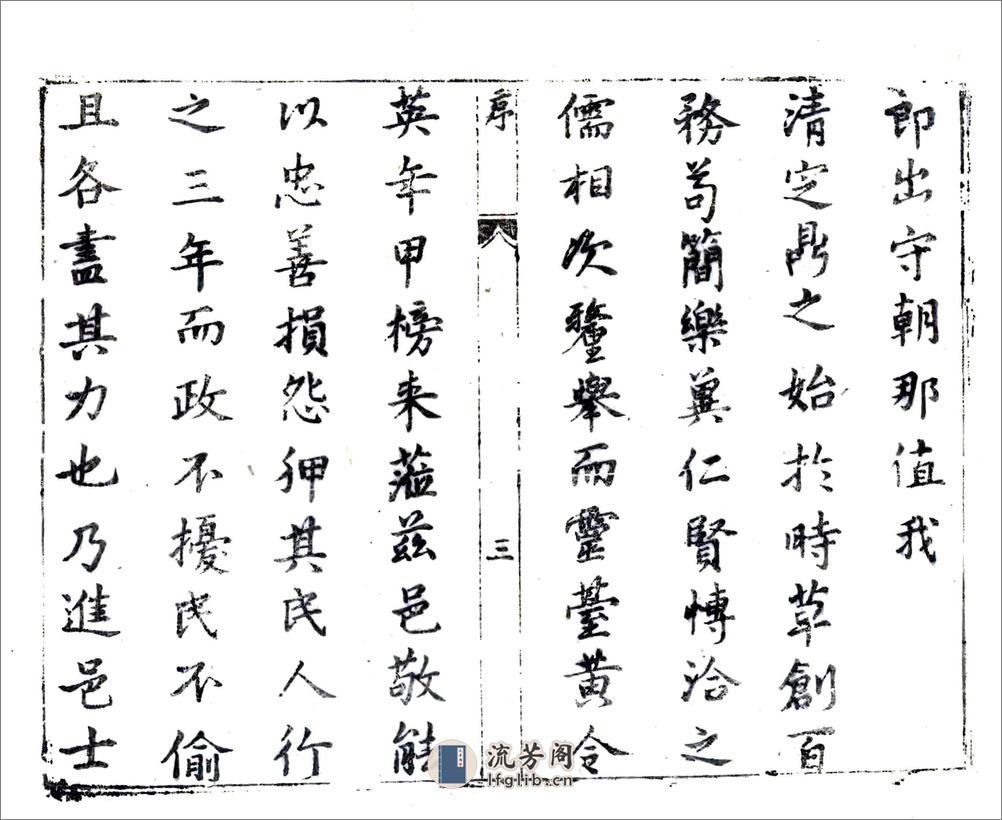 郎出守朝那值我
清定鼎之始於時草創百
務苟簡樂冀仁賢愽洽之
儒相次釐舉而靈䑓黄令
序
三
英年甲榜来蒞兹邑敬能
以忠善損怨狎其民人行
之三年而政不擾民不偷
且各盡其力也乃進邑士
流芳阁
lfglib.cn